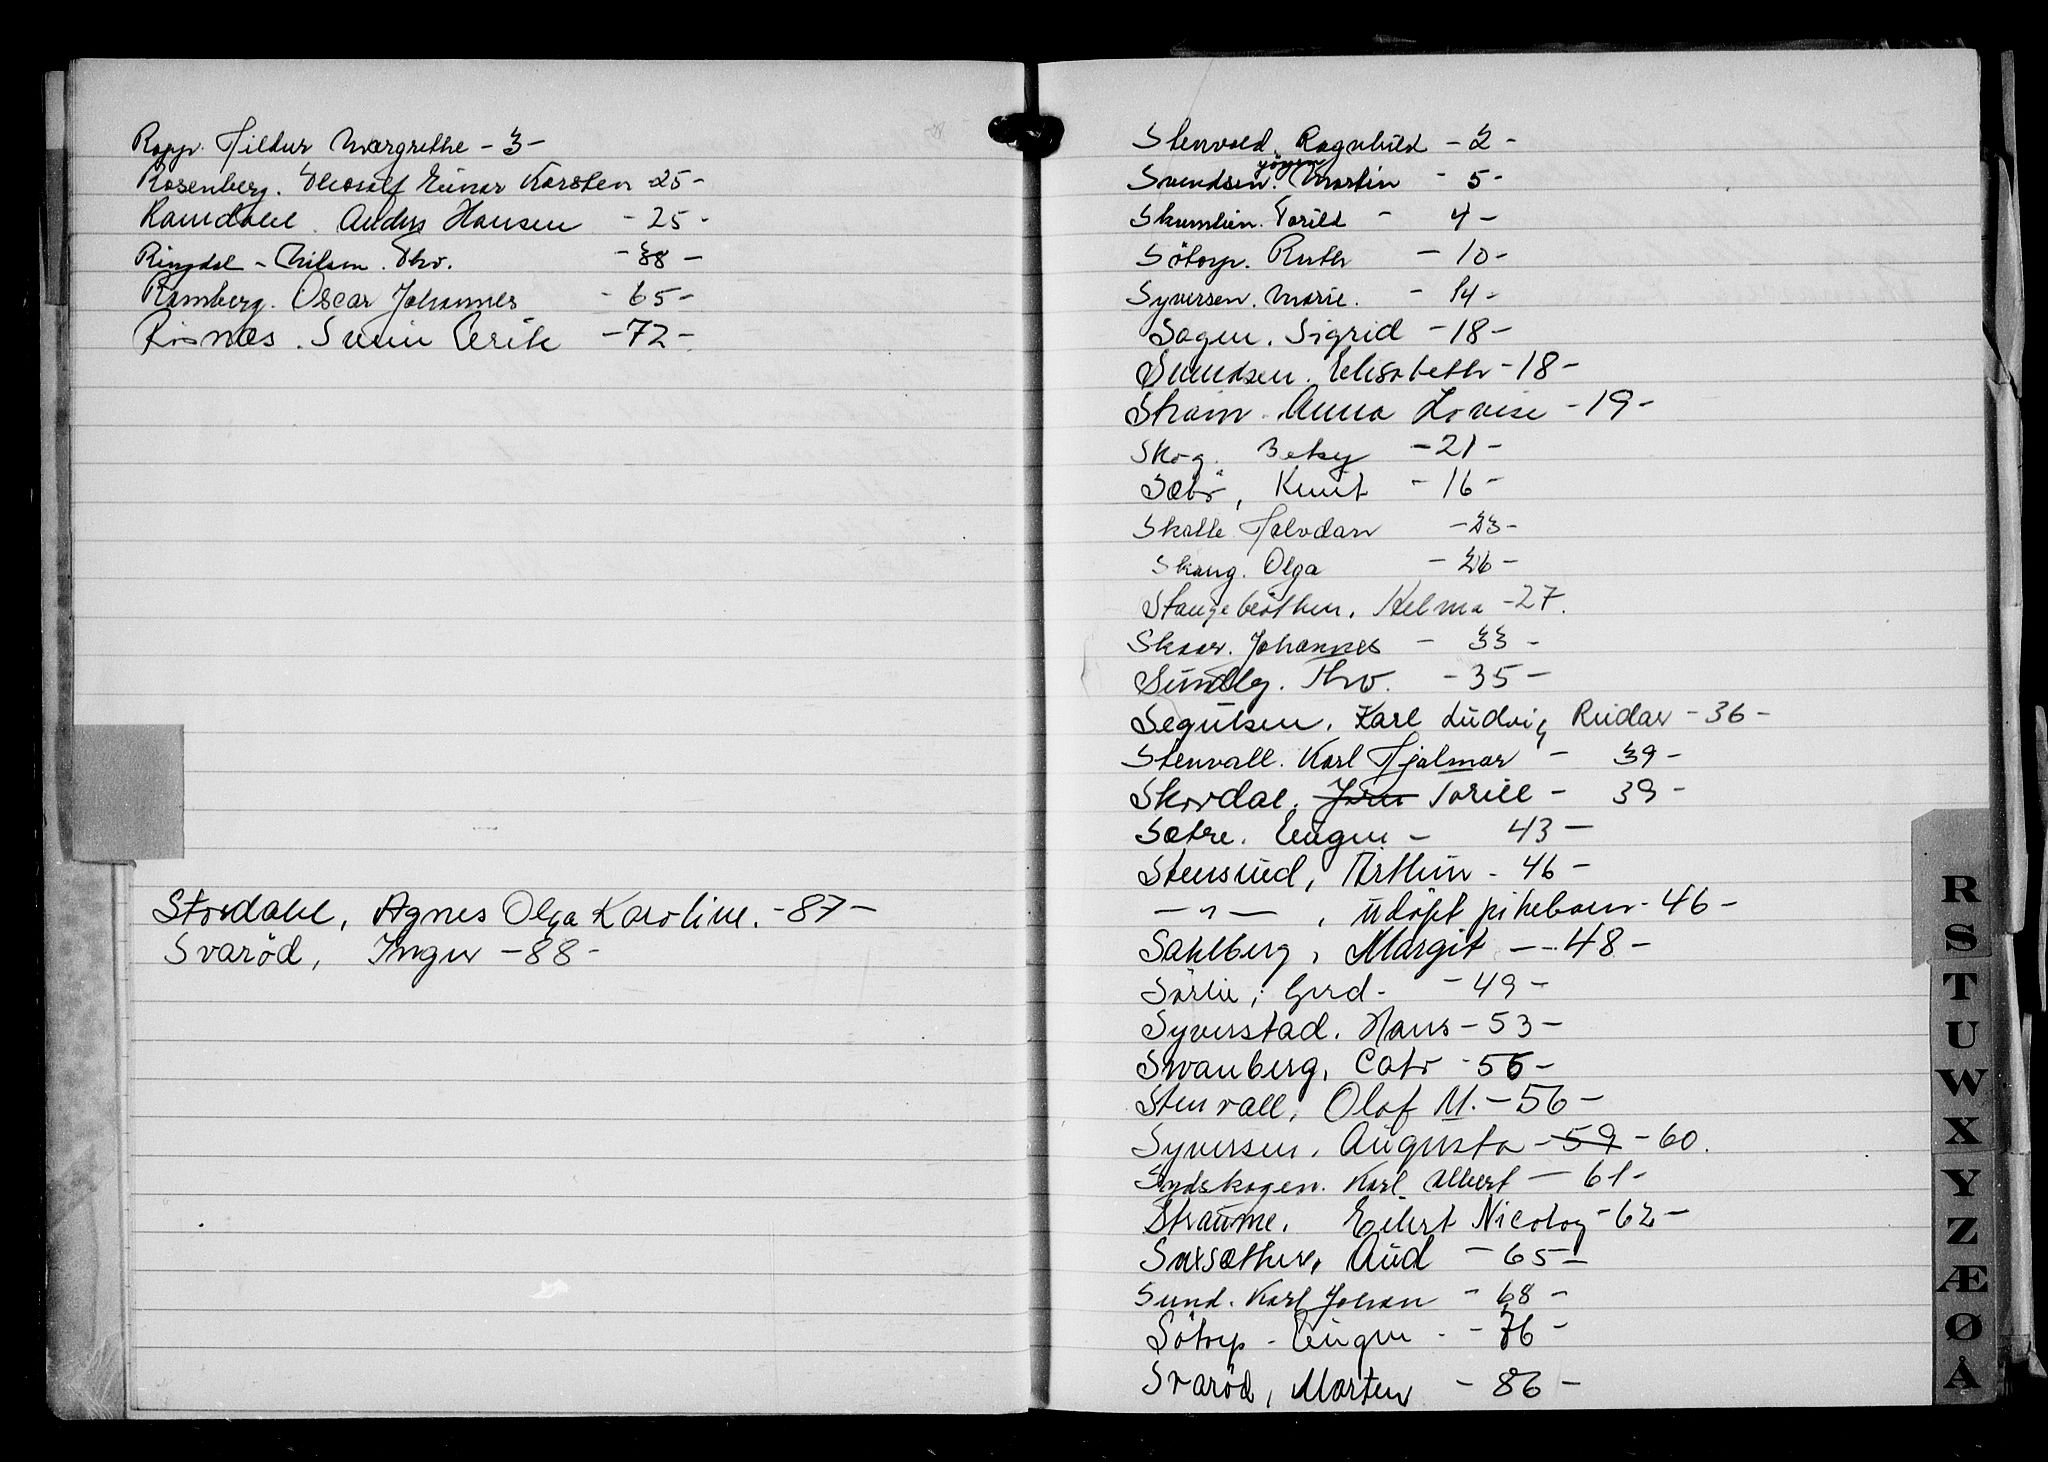 Rapp. Hildur Margrethe - 3 -
Rosenberg. Thoralf Einar Karsten 25 -
Ramdahl. Anders Hansen - 25 -
Ringdal - Nilsen. Thv. - 38 -
Ramberg. Oscar Johannes - 65 -
Risnes. Svein Eerik - 72 -
Stordahl, Agnes Olga Karoline. - 87 -
Svaröd, Inger - 88 -
Stenvold. Ragnhild - 2 -
Svendsen. Martin - 5 -
Skumlien. Torild - 4 -
Sötorp. Ruth - 10 -
Syversen. Marie. - 14 -
Sagen. Sigrid - 18 -
Svendsen. Elisabeth - 18 -
Strøm. Anna Lovise - 19 -
Skog. Betsy - 21 -
Sæbö, Knut - 16 -
Skalle Halvdan - 23 -
Skaug. Olga - 26 -
Stangebröthen. Helma - 27.
Skaar. Johannes - 33 -
Sundbg. Thv. - 35 -
Segulsen. Karl Ludvig Reidar - 36 -
Stenvall. Karl Hjalmar - 39 -
Skordal. Torill - 39 -
Sætre. Eugen - 43 -
Stensrud, Arthur - 46 -
- " - , udöpt pikebarn - 46 -
Sahlberg, Margit - 48 -
Sörlie, Gerd - - 49 -
Syverstad. Hans - 53 -
Svanberg, Cato - 56 -
Stenvall, Olof M. - 56 -
Syversen, Augusta - 59 - 60.
Sydskogen. Karl Albert - 61 -
Straume. Eilert Nicolay - 62 -
Saxsæther, Aud - 65 -
Sund. Karl Johan - 68 -
Sötorp - Eugen - - 76 -
Svaröd, Morten - 86 -
R
S
T
U
W
X
Y
Z
Æ
Ø
Å